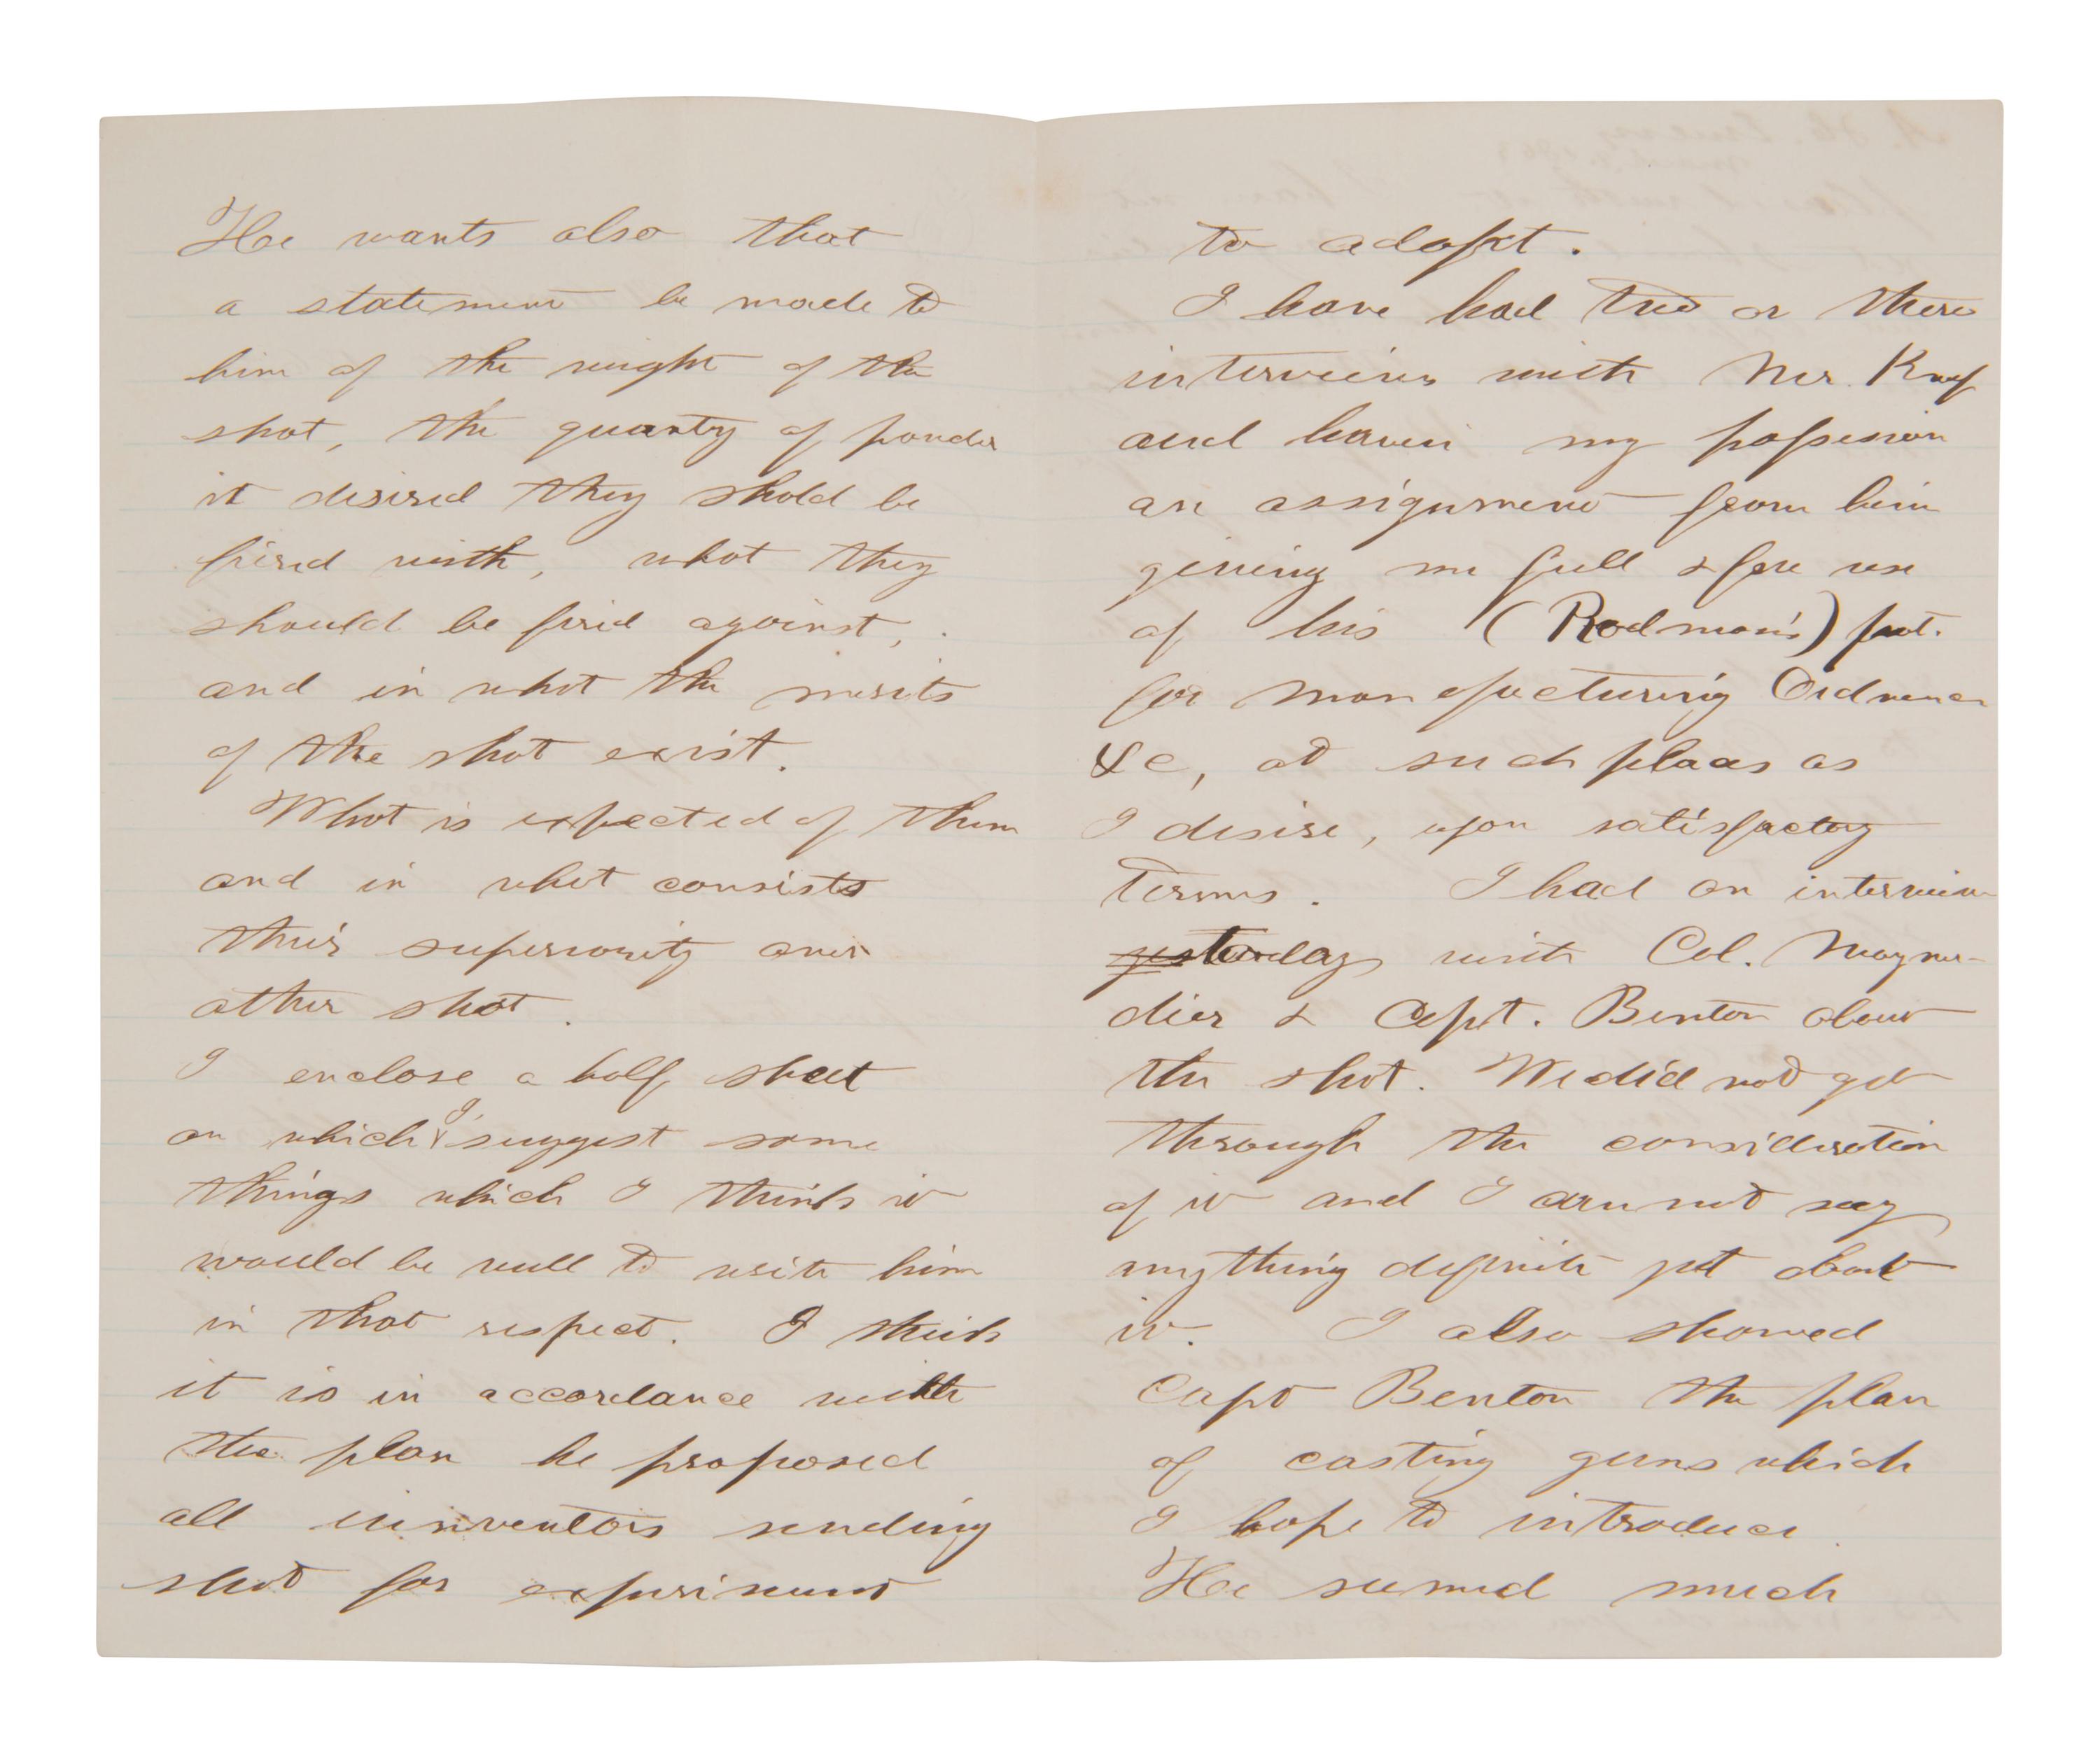 He wants also that
a statement be made to
him of the weight of the
shot, the quanty of powder
it desired they shold be
fired with, what they
should be fired against,
and in what the merits
of the shot exist.
What is expected of them
and in what consists
their superiority over
other shot.
I enclose a half sheet
on which I suggest some
things which I think it
would be well to write him
in that respect. I think
it is in accordance with
the plan he proposed
all ininventors sending
shot for experiment
to adopt.
I have had two or three
interviews with Mr. Knap
and have in my possession
an assignment from him
giving me full & free use
of his (Rodman's) pat.
for manufacturing Ordnance
&c, at such places as
I desire, upon satisfactory
Terms. I had an interview
yesterday with Col. Mayna-
dier & Capt. Benton about
the shot. We did not get
through the consideration
of it and I can not say
anything definite yet about
it. I also showed
Capt Benton the plan
of casting guns which
I hope to introduce.
He seemed much